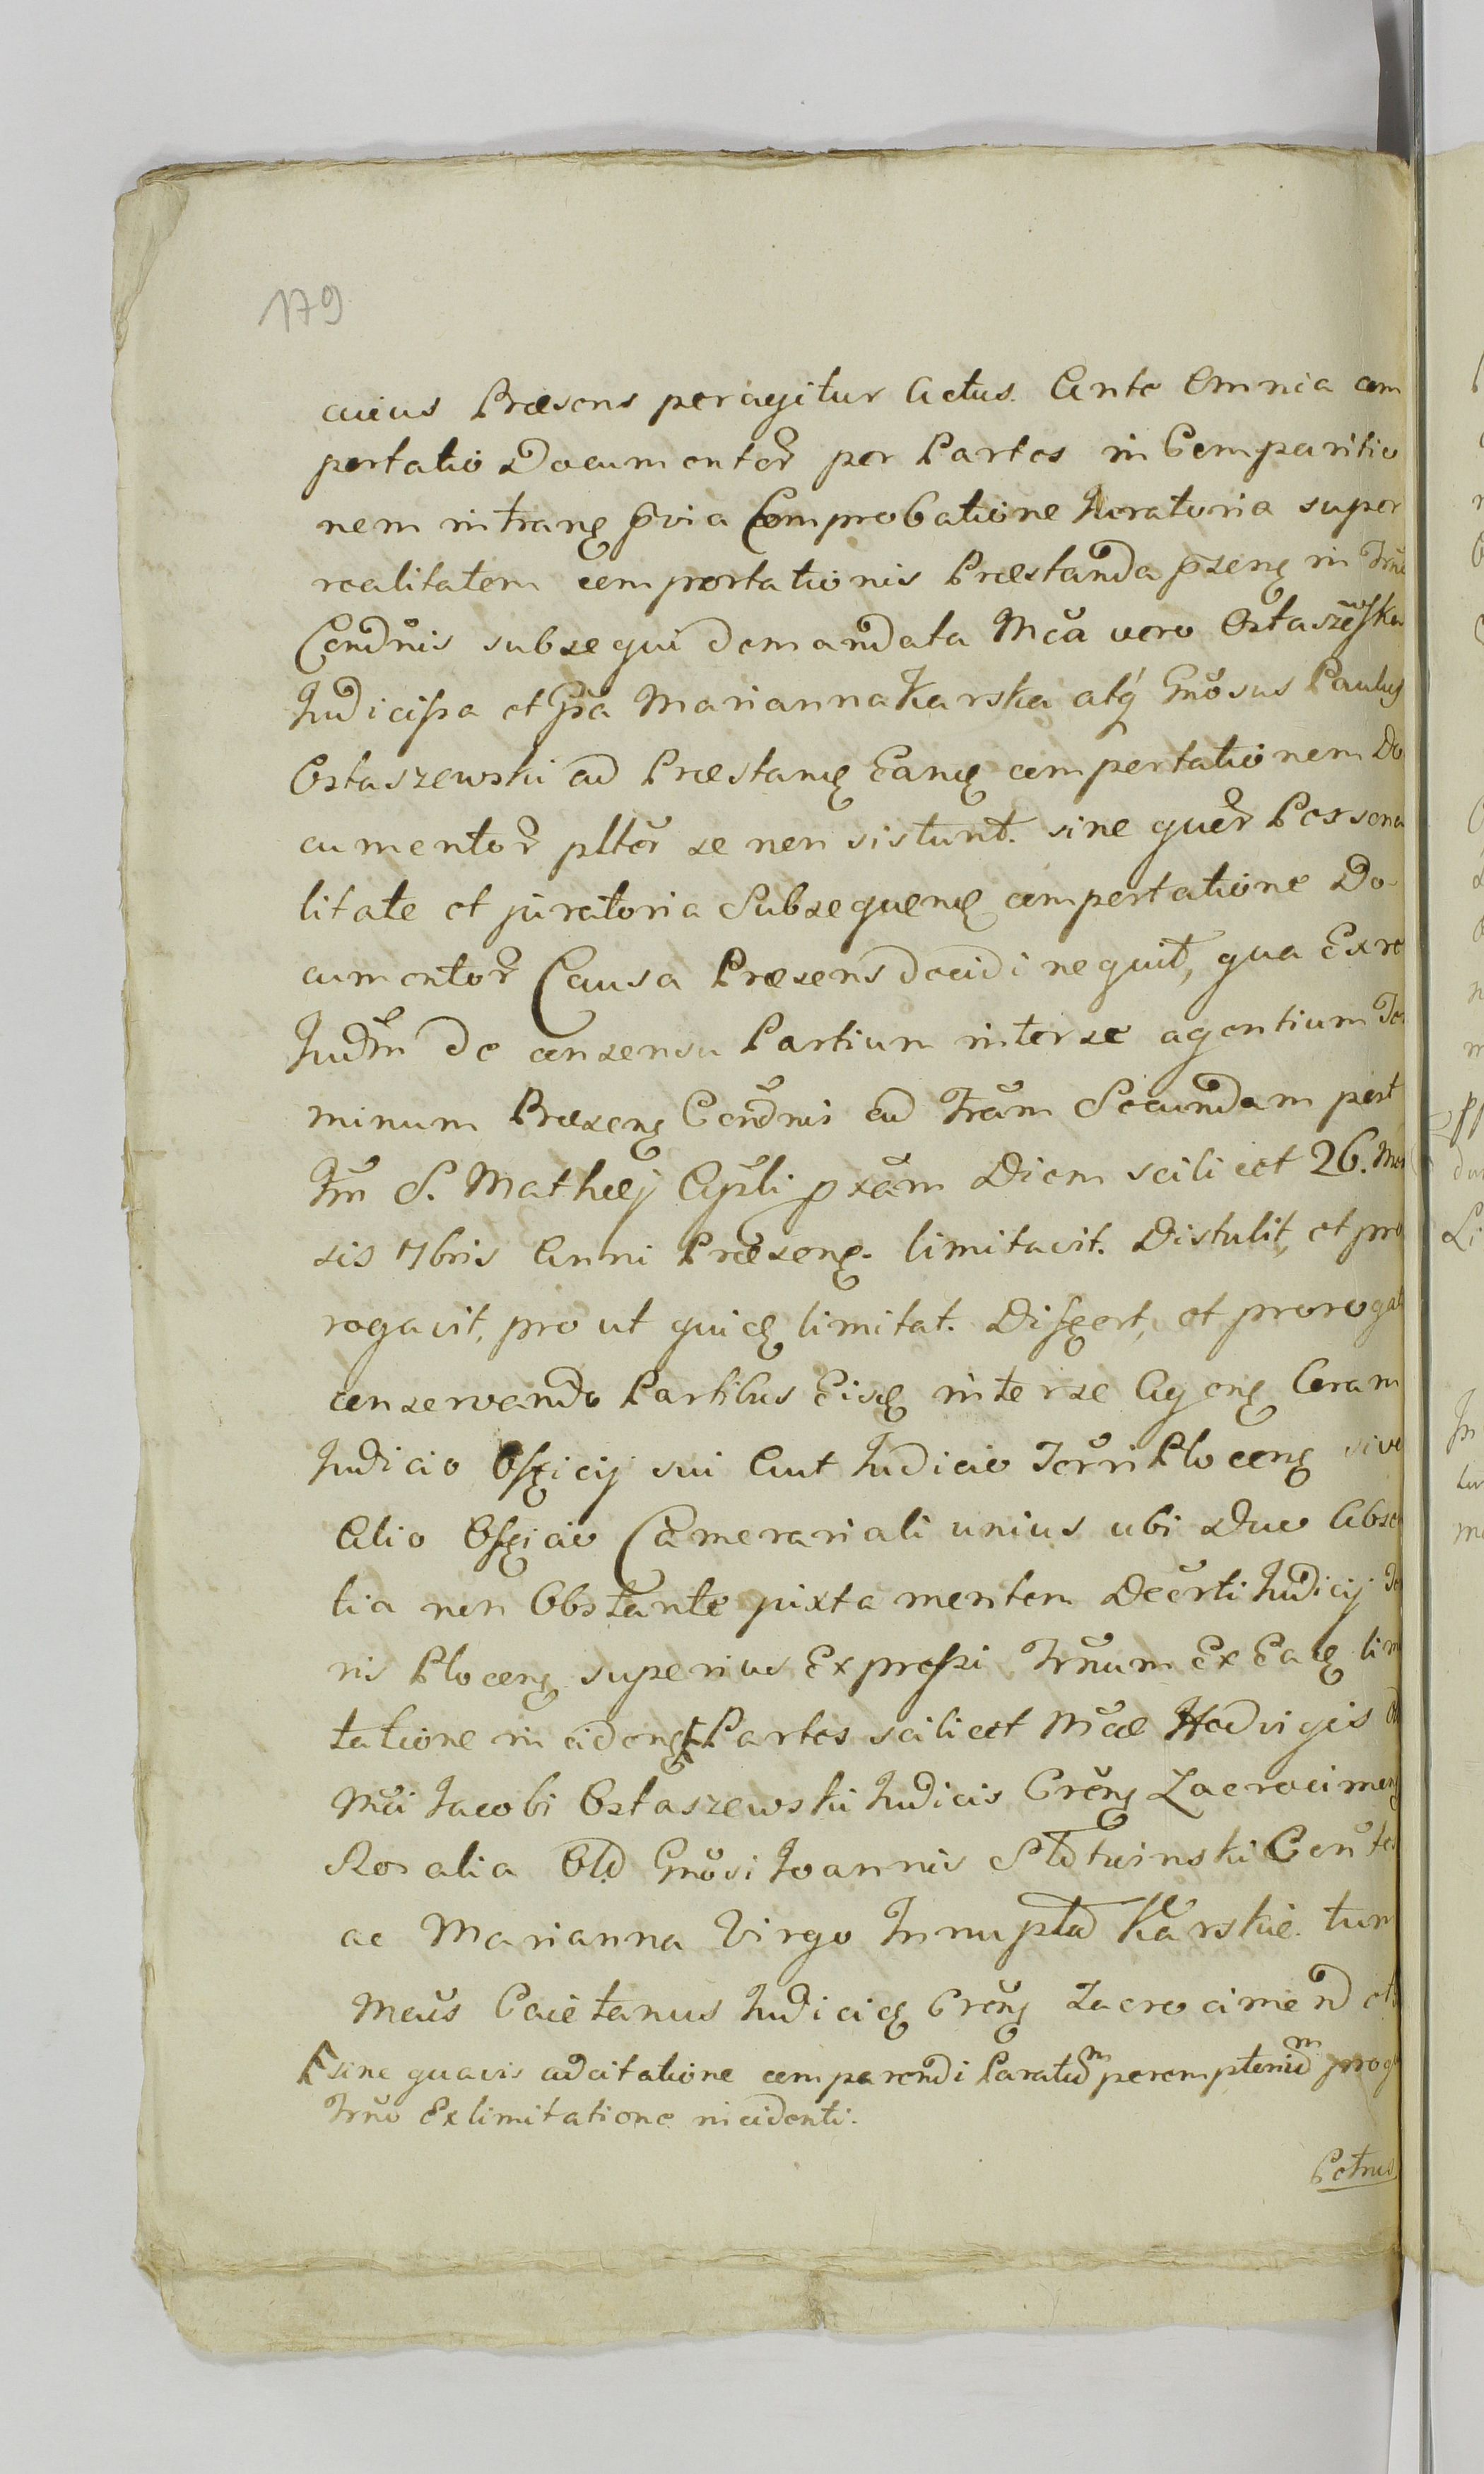 179
cuius Præsens peragitur Actus. Ante Omnia com
portatio Documentor̃ per Partes in Comparitio
nem intran̨ p̃via Comprobatione Iuratoria super
realitatem comportationis Præstanda p̃sen̨ in Tr̃no
Cond̃nis subsequi demandata Mc̃a vero Ostaszew̃ska
Judicissa et G̃sa Marianna Karska atq́ Gnõsus Paulus
Ostaszewski ad Præstanḑ Eanḑ comportationem Do
cumentor̃ pltẽr se non sistunt. sine quor̃ Persona
litate et juratoria Subsequenḑ comportatione Do-
cumentor̃ Causa Præsens decidi nequit, qua Ex re
Jud̃m de consensu Partium inter se agentium Ter
minum Præsen̨ Cond̃nis ad Fr̃am Secundam post
F̃m S. Mathæj Ap̃li p̃xam Diem scilicet 26. Men
sis 7bris Anni Præsen̨. limitavit. Distulit, et pro
rogavit, pro ut quiḑ limitat. Differt, et prorogat
conservando Partibus Eisḑ inter se Agen̨ Coram
Judicio Officij sui Aut Judicio Terr̃i Plocen̨ sive
Alio Officio Camerariali unius ubi Duo Absen
tia non Obstante juxta mentem Decr̃ti Judicij Ter
ris Plocen̨ superius Expressi Tr̃num Ex Eaḑ limi
tatione inciden̨ Partes scilicet Mc̃æ Hedvigis Ol̃
Mc̃i Jacobi Ostaszewski Judicis Cr̃en̨ Zacrocimen̨
Rosalia Ol̃d Gnõsi Joannis Słd̃twinski Con̄te
ac Marianna Virgo Innupta Karskie. tum
Mc̃us Caietanus Judiciḑ Cr̃en̨ Zacrocimen̄ et
sine quavis adcitatione comparendi Paratum peremptorium proq̃
Tr̃no Ex limitatione incidenti.
Petrus